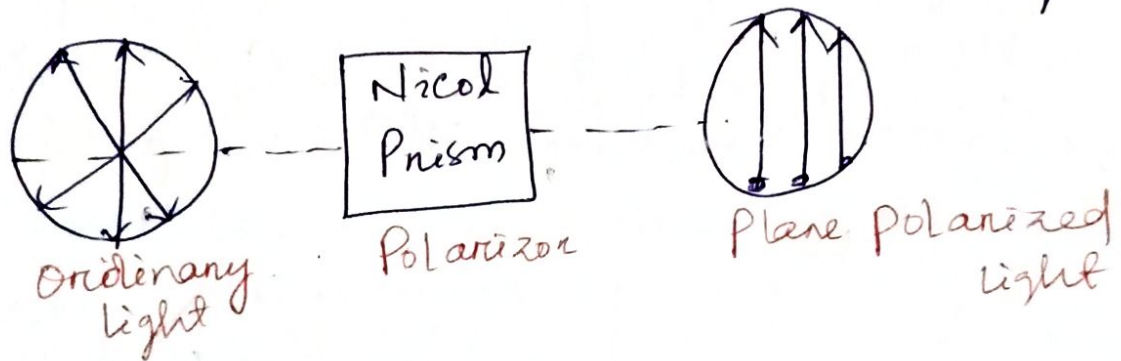 Nicol
Prism
Ordinary
light
Polarizor
Plane Polarized
light